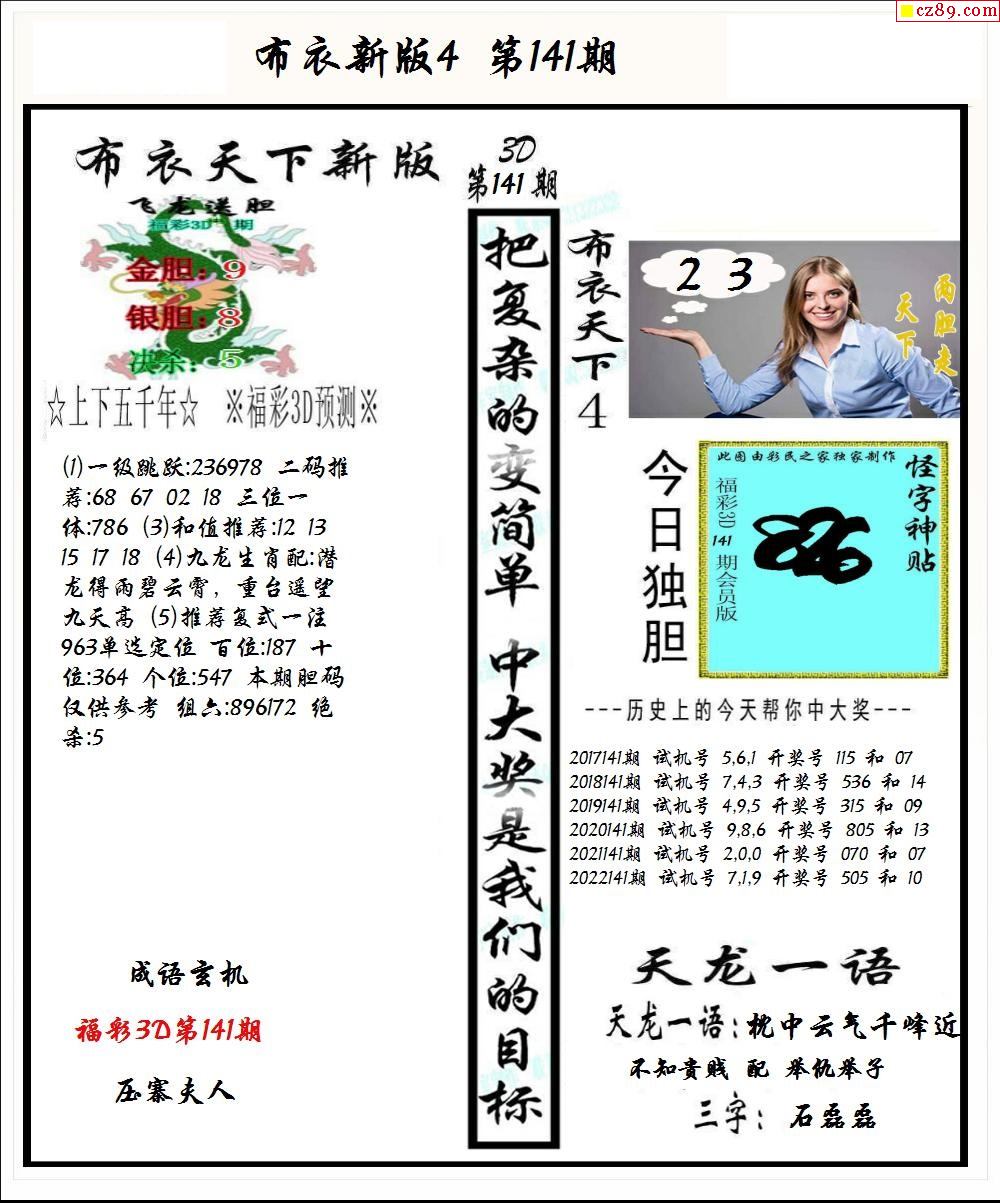 cz89.com
布衣新版4 第141期
布衣天下新版
飞龙送胆
福彩3D 期
金胆：9
银胆：8
决杀：5
☆上下五千年☆ ※福彩3D预测※
(1)一级跳跃:236978 二码推
荐:68 67 02 18 三位一
体:786 (3)和值推荐:12 13
15 17 18 (4)九龙生肖配:潜
龙得雨碧云霄，重台遥望
九天高 (5)推荐复式一注
963单选定位 百位:187 十
位:364 个位:547 本期胆码
仅供参考 组六:896172 绝
杀:5
成语玄机
福彩3D第141期
压寨夫人
3D
第141期
把复杂的变简单 中大奖是我们的目标
布衣天下4
2 3
两胆走
天下
今日独胆
此图由彩民之家独家制作
怪字神贴
福彩3D 141 期会员版
---历史上的今天帮你中大奖---
2017141期 试机号 5,6,1 开奖号 115 和 07
2018141期 试机号 7,4,3 开奖号 536 和 14
2019141期 试机号 4,9,5 开奖号 315 和 09
2020141期 试机号 9,8,6 开奖号 805 和 13
2021141期 试机号 2,0,0 开奖号 070 和 07
2022141期 试机号 7,1,9 开奖号 505 和 10
天龙一语
天龙一语:枕中云气千峰近
不知贵贱 配 举仇举子
三字： 石磊磊